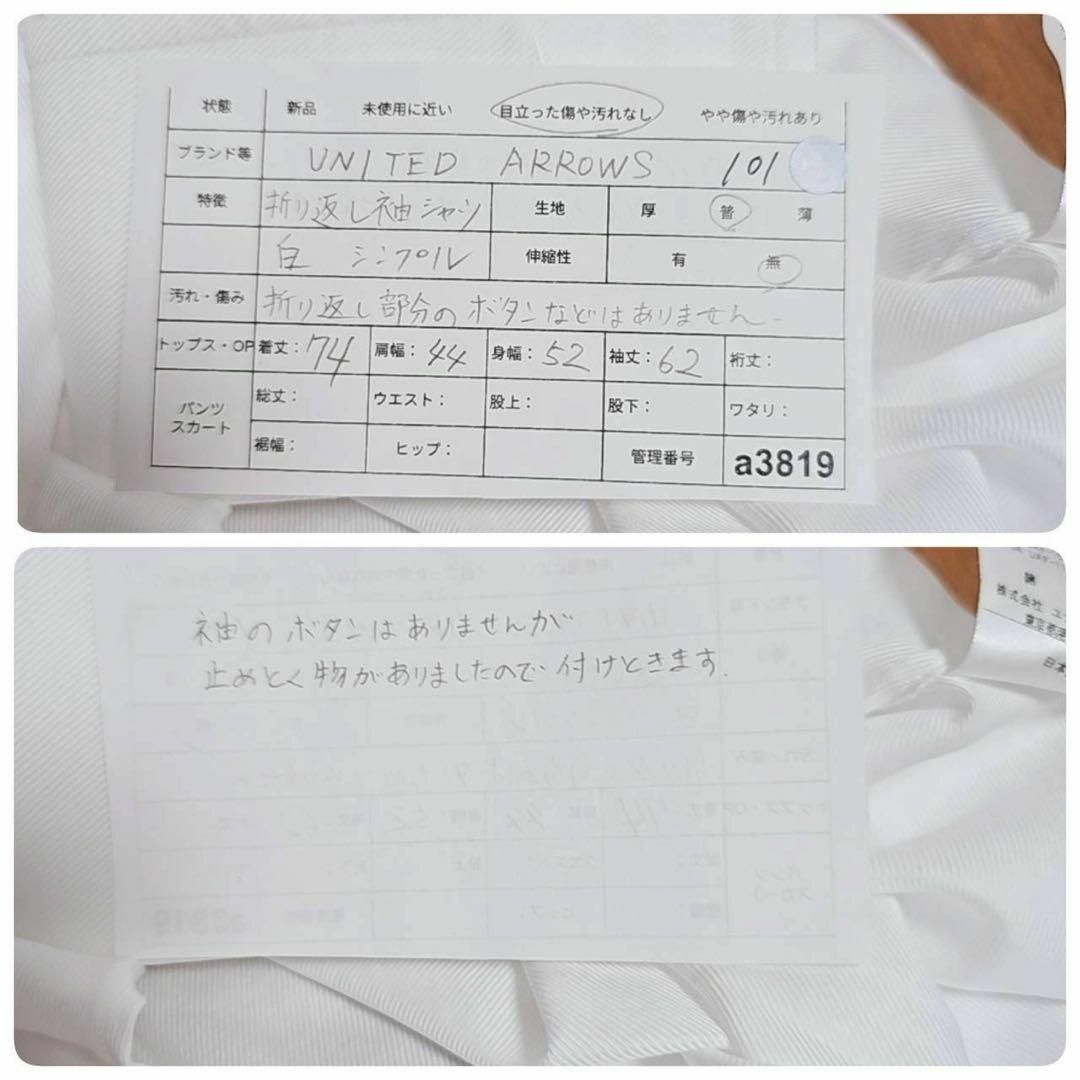 状態 新品 未使用に近い 目立った傷や汚れなし やや傷や汚れあり
ブランド等 UNITED ARROWS 101
特徴 折り返し袖シャツ 生地 厚 普 薄
白 シンプル 伸縮性 有 無
汚れ・傷み 折り返し部分のボタンなどはありません
トップス・OP 着丈:74 肩幅:44 身幅:52 袖丈:62 裄丈:
パンツ スカート 総丈: ウエスト: 股上: 股下: ワタリ:
裾幅: ヒップ: 管理番号 a3819
袖のボタンはありませんが
止めとく物がありましたので付けときます.
株式会社 ユ
東京都
日本